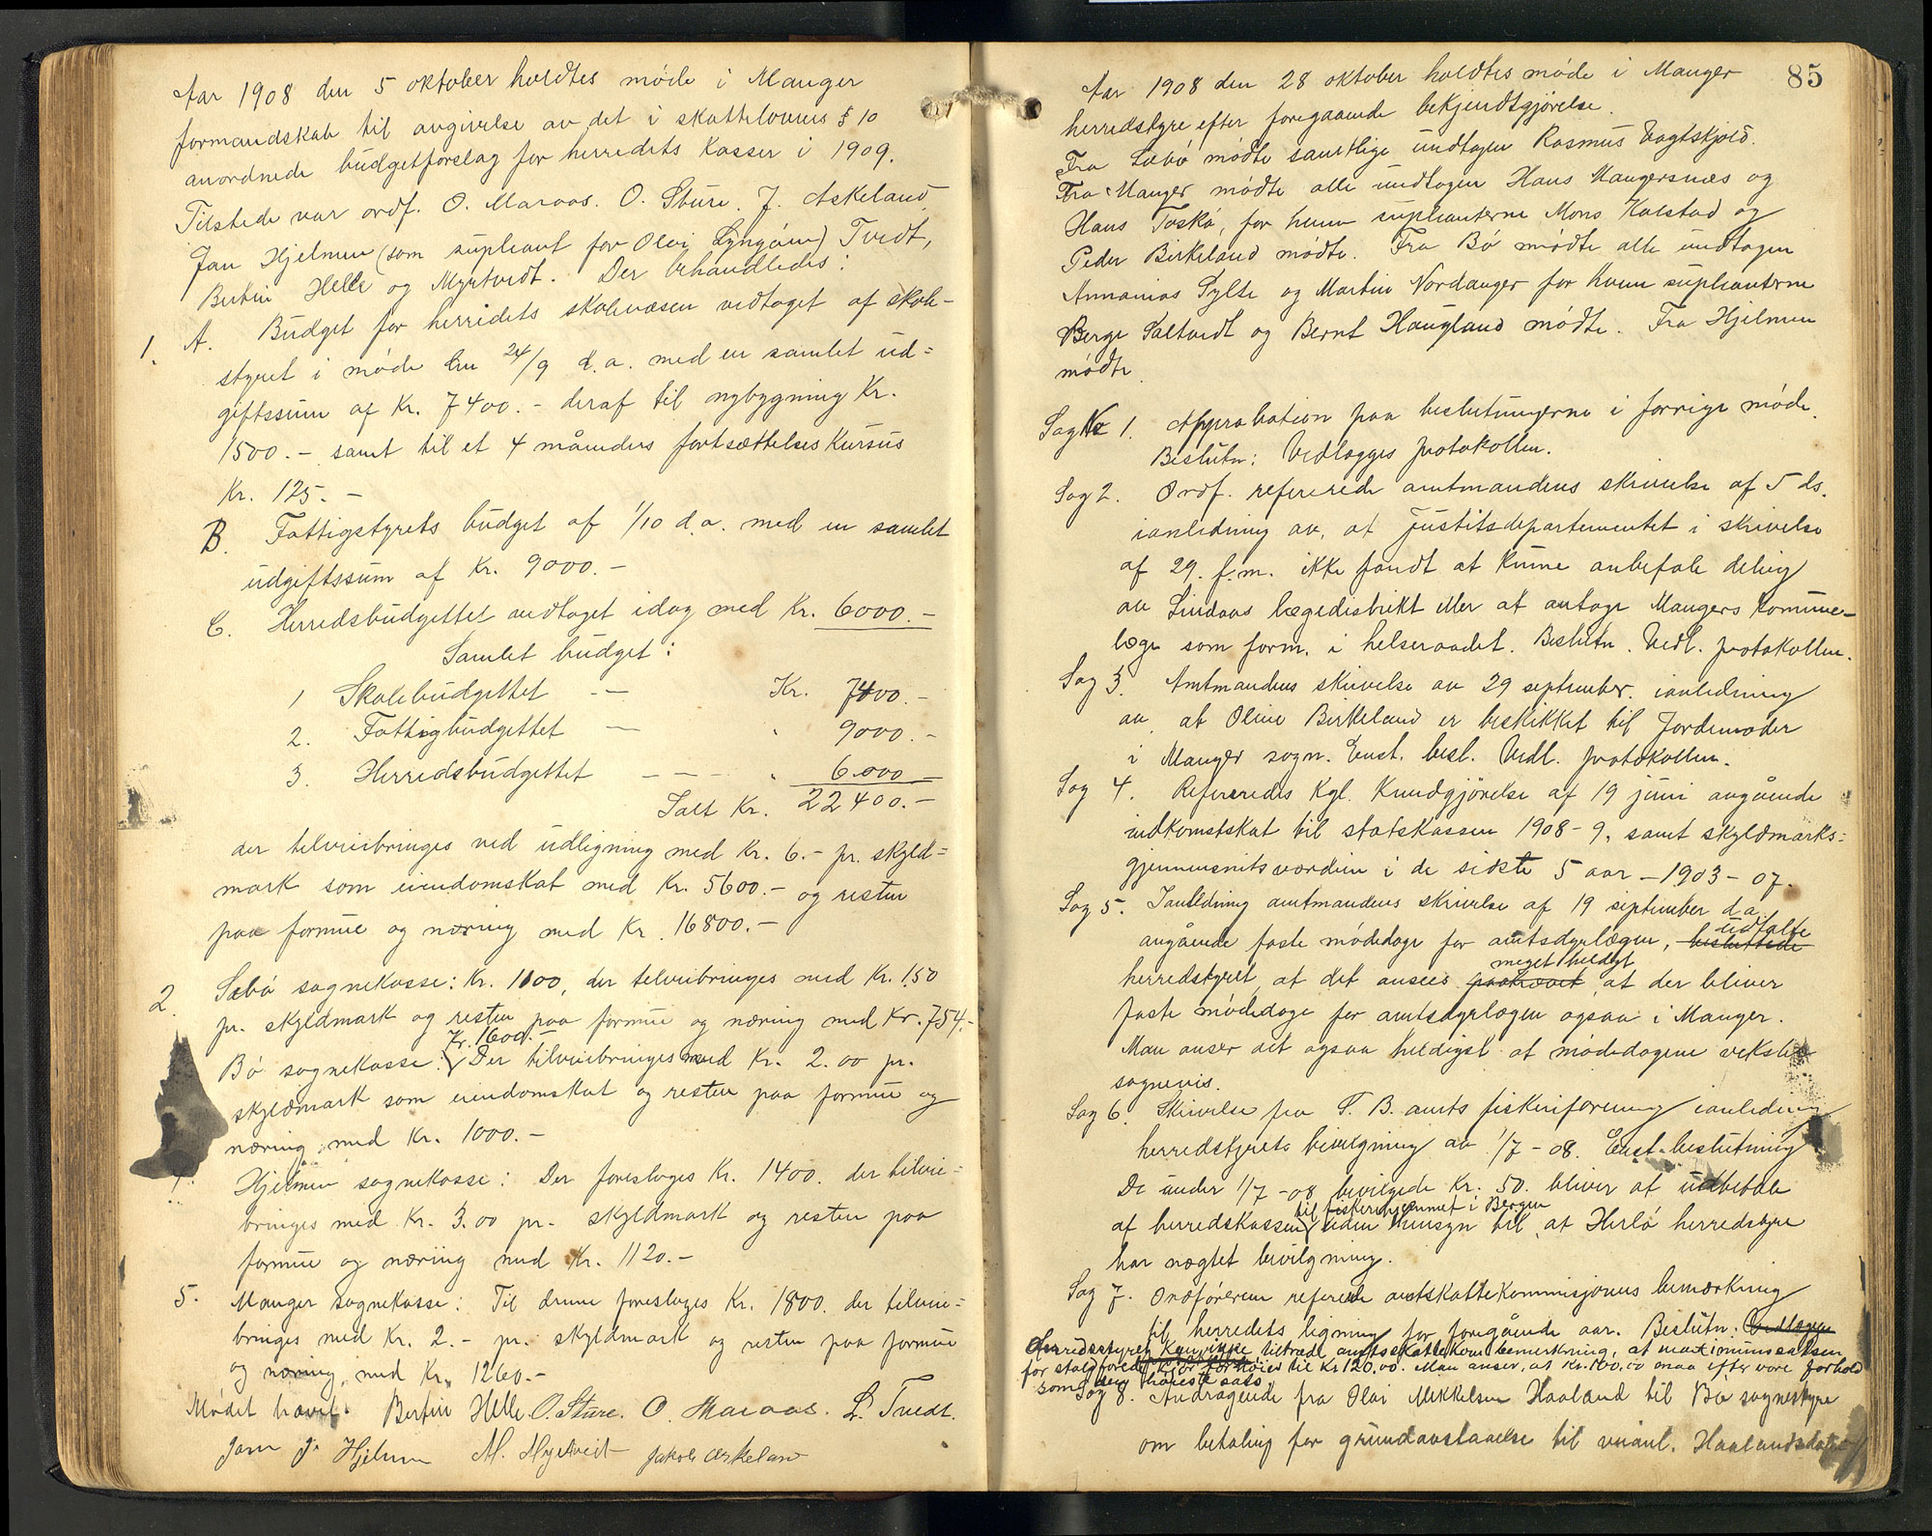 Aar 1908 den 5 oktober holdtes møde i Manger
formandskab til avgivelse av det i skattelovens § 10
anordnede budgetforslag for herredets kasser i 1909.
Tilstede var ordf. O. Maraas. O. Sture. J. Askeland
Jan Hjelmen (som supleant for Olai Lyngøen) Tvedt,
Bertin Helle og Myrtvedt. Der behandledes:
1. A. Budget for herridets skolevæsen vedtaget af skole-
styret i møde den 24/9 d.a. med en samlet ud=
giftssum af Kr. 7400.- deraf til nybygning Kr.
1500.- samt til et 4 måneders fortsættelseskursus
Kr. 125.-
B. Fattigstyrets budget af 1/10 d.a. med en samlet
udgiftssum af Kr. 9000.-
C. Herredsbudgettet vedtaget idag med Kr. 6000.-
Samlet budget:
1 Skolebudgettet - Kr. 7400.-
2. Fattigbudgettet - " 9000.-
3 Herredsbudgettet - - - " 6000.-
Ialt Kr. 22400.-
der tilveiebringes ved udligning med Kr. 6.- pr. skyld=
mark som eiendomskat med Kr. 5600.- og resten
paa formue og næring med Kr. 16800.-
2. Sæbø sognekasse: Kr. 1100, der tilveiebringes med Kr. 1.50
pr. skyldmark og resten paa formue og næring med Kr. 754.-
Kr. 1600.-
Bø sognekasse: Der tilveiebringes med Kr. 2.00 pr.
skyldmark som eiendomskat og resten paa formue og
næring med Kr. 1000.-
Hjelmen sognekasse: Der foreslages Kr. 1400. der tilveie=
bringes med Kr. 3.00 pr. skyldmark og resten paa
formue og næring med Kr. 1120.-
5. Manger sognekasse: Til denne foreslages Kr. 1800. der tilveie=
bringes med Kr. 2.- pr. skyldmark og resten paa formue
og næring, med Kr. 1260.-
Mødet hævet. Bertin Helle O. Sture. O. Maraas. L. Tvedt.
Jan J. Hjelmen M. Myrtveit Jakob Askeland
85
Aar 1908 den 28 oktober holdtes møde i Manger
herredstyre efter foregaaende bekjendtgjørelse.
Fra Sæbø mødte samtlige undtagen Rasmus Vagtskjold.
Fra Manger mødte alle undtagen Hans Mangersnæs og
Hans Toska, for hvem suplianterne Mons Kalstad og
Peder Birkeland mødte. Fra Bø mødte alle undtagen
Annanias Sylte og Martin Nordanger for hvem suplianterne
Berge Saltvedt og Bernt Haugland mødte. Fra Hjelmen
mødte
Sag No 1. Approbation paa beslutningerne i forrige møde.
Beslutn: Vedlægges protokollen.
Sag 2. Ordf. refererede amtmandens skrivelse af 5 ds.
ianledning av, at Justitsdepartementet i skrivelse
af 29. f.m. ikke fandt at kunne anbefale deling
av Lindaas lægedistrikt eller at antage Mangers kommune-
læge som form. i helseraadet. Beslutn. Vedl. protokollen.
Sag 3. Amtmandens skrivelse av 29 september. ianledning
av at Oline Birkeland er beskikket til Jordemoder
i Manger sogn. Enst. besl. Vedl. protokollen.
Sag 4. Refereredes Kgl. Kundgjørelse af 19 juni angående
indkomstskat til statskassen 1908-9, samt skyldmarks=
gjennemsnitsværdien i de sidste 5 aar - 1903-07.
Sag 5. Ianledning amtmandens skrivelse af 19 september d.a.
udtalte
angående faste mødedage for amtsdyrlægen, besluttede
meget heldigt
herredstyret, at det ansees paakrævet at der bliver
faste mødedage for amtsdyrlægen ogsaa i Manger.
Man anser det ogsaa heldigst at mødedagene veksler
sognevis.
Sag 6. Skrivelse fra S. B. amts fiskeriforening ianledning
herredstyrets bevilgning av 1/7-08. Enst. beslutning
De under 1/7-08 bevilgede Kr. 50. bliver at udbetale
til fiskerihjemmet i Bergen
af herredskassen uden hensyn til, at Herlø herredstyre
har nægtet bevilgning.
Sag 7. Ordføreren referede amtskattekommisjonens bemærkning
til herredets ligning for foregående aar. Beslutn. Vedlægges
Herredsstyret kan ikke tiltræde amtsskattekom bemerkning, at maximumssatsen
for staldfored ko bør forhøies til Kr 120,00. Man anser, at Kr. 100.00 maa efter vore forhold
som den høieste sats.
Sag 8. Andragende fra Olai Mikkelsen Haaland til Bø sognestyre
om betaling for grundavstaaelse til veianl. Haalandsdalen